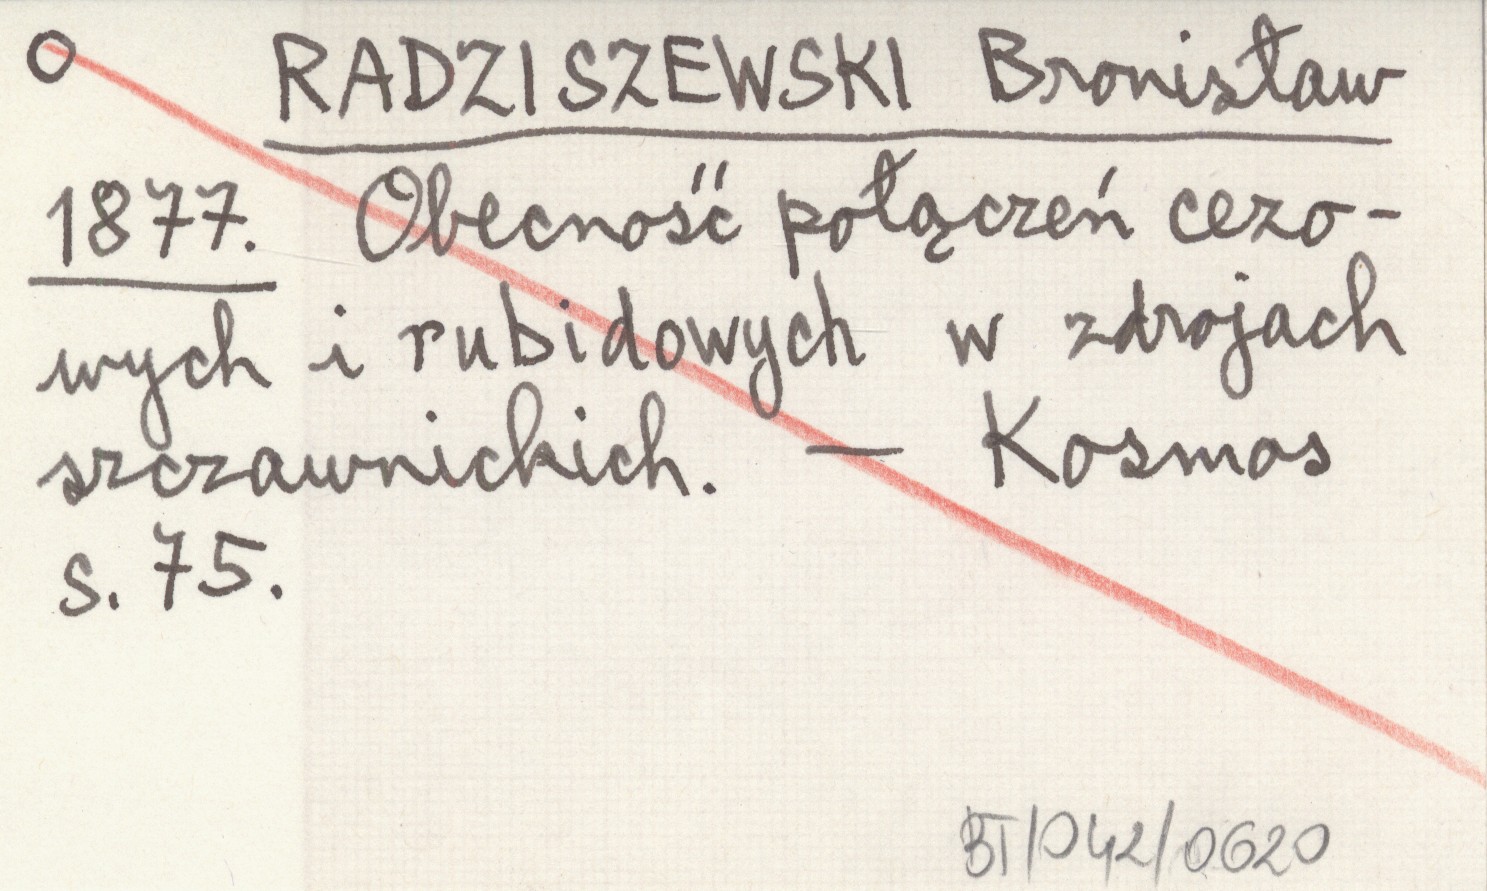 RADZISZEWSKI Bronisław
1877. Obecność połączeń cezo-
wych i rubidowych w zdrojach
szczawnickich. — Kosmos
s. 75.
BT/042/0620